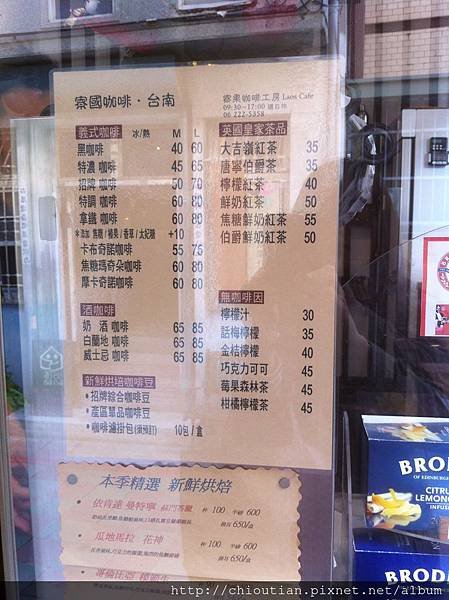 寮國咖啡·台南
寮果咖啡工房 Laos Cafe
09:30~17:00 週日休
06 222-5358
義式咖啡 冰/熱 M L
黑咖啡 40 60
特濃 咖啡 45 65
招牌 咖啡 50 70
特調 咖啡 60 80
拿鐵 咖啡 60 80
*添加 焦糖/榛果/香草/太妃糖 +10
卡布奇諾咖啡 55 75
焦糖瑪奇朵咖啡 60 80
摩卡奇諾咖啡 60 80
酒咖啡
奶 酒 咖啡 65 85
白蘭地 咖啡 65 85
威士忌 咖啡 65 85
新鮮烘培咖啡豆
• 招牌綜合咖啡豆
• 產區單品咖啡豆
• 咖啡濾掛包(須預訂) 10包/盒
英國皇家茶品
大吉嶺紅茶 35
唐寧伯爵茶 35
檸檬紅茶 40
鮮奶紅茶 50
焦糖鮮奶紅茶 55
伯爵鮮奶紅茶 50
無咖啡因
檸檬汁 30
話梅檸檬 35
金桔檸檬 40
巧克力可可 45
莓果森林茶 45
柑橘檸檬茶 45
本季精選 新鮮烘焙
依肯達 曼特寧 蘇門答臘 杯 100 半磅 600
掛耳 650/盒
瓜地馬拉 花神 杯 100 半磅 600
掛耳 650/盒
哥倫比亞
BROD
OF EDINBURG
CITRU
LEMON
INFUS
BROD
http://chioutian.pixnet.net/album